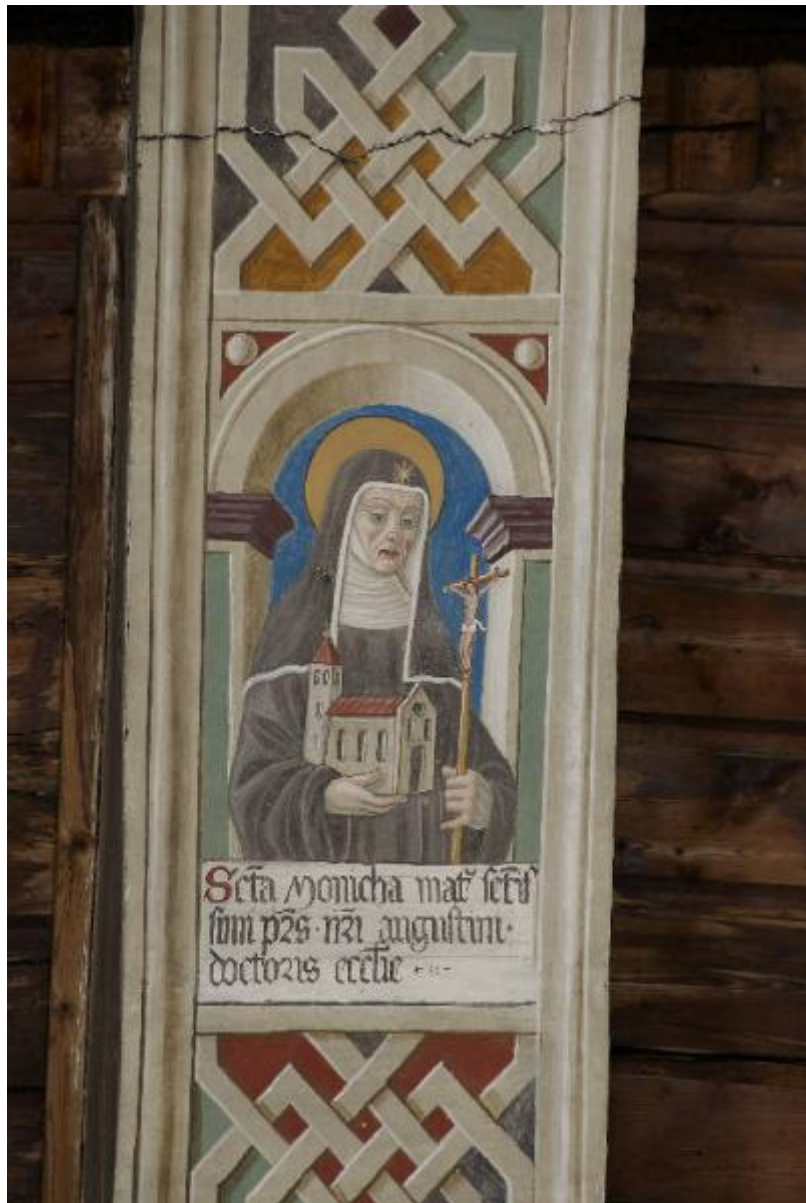 Scta Monicha mat̄ sctis
simi pr̄s · nr̄i augustini ·
doctoris eccl̄ie